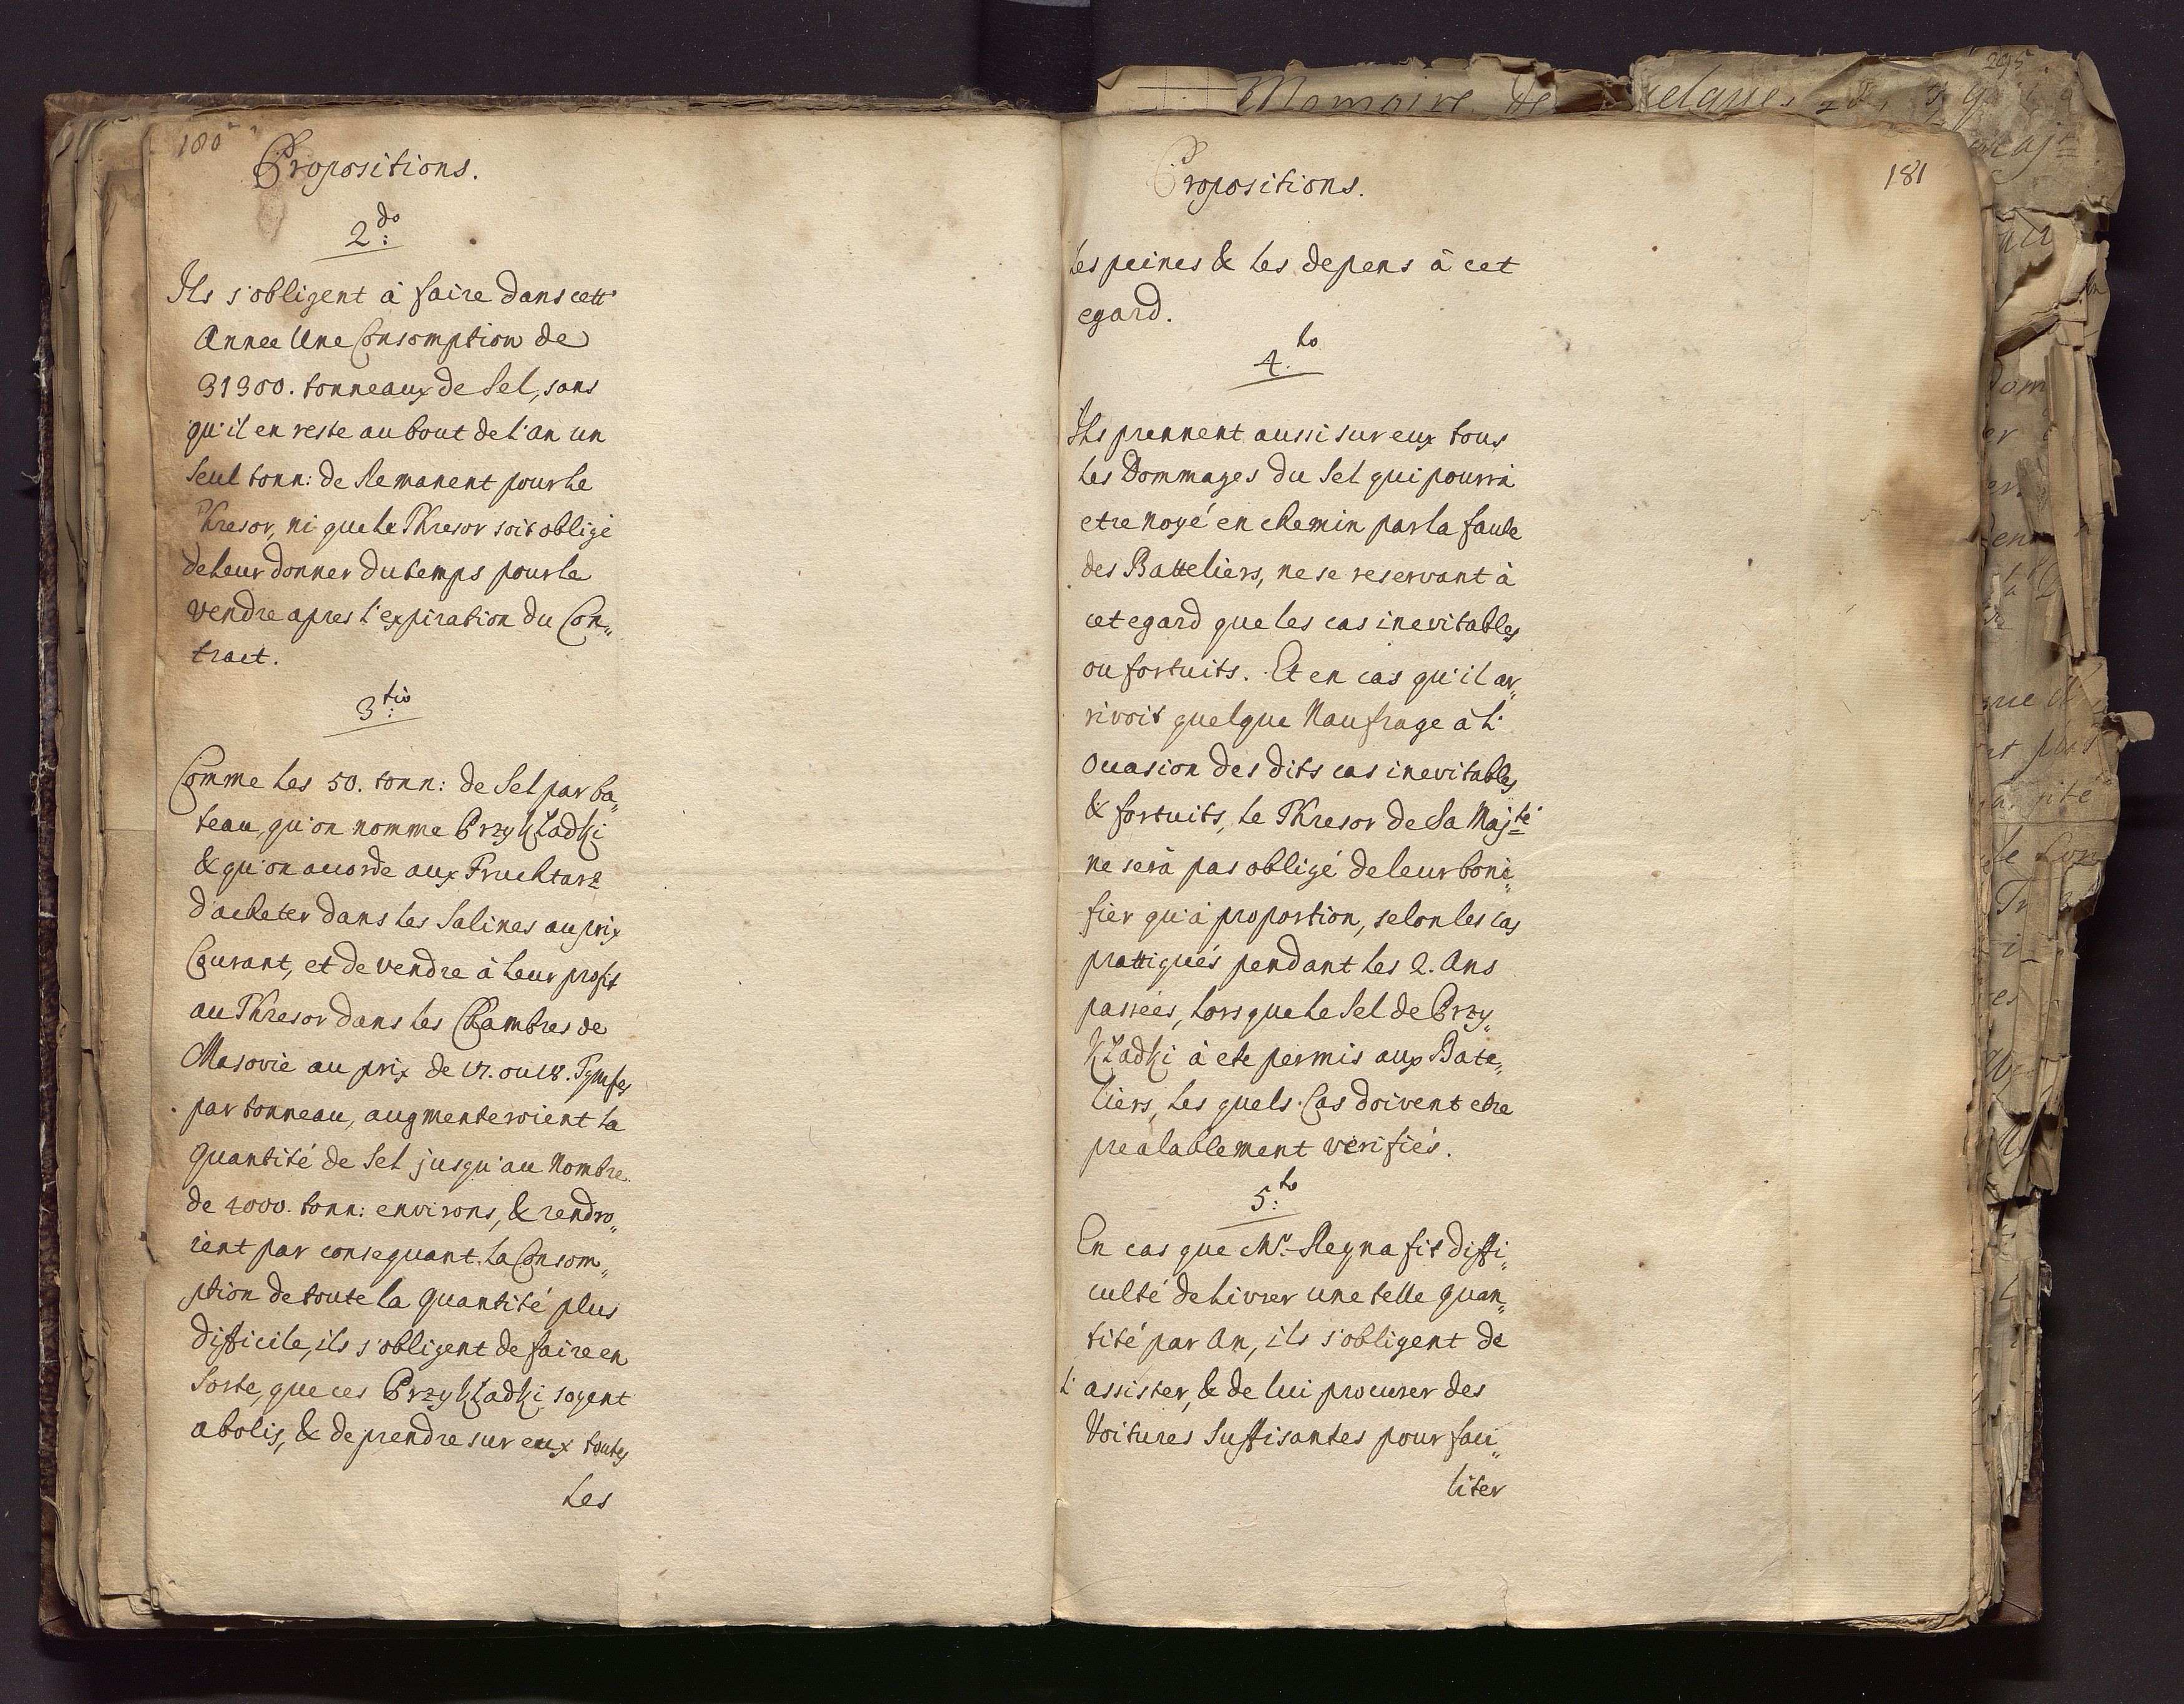 180
Propositions.
2do:
Ils s'obligent à faire dans cett'
Annee Une Consomption de
31300. tonneaux de Sel, sans
qu'il en reste au bout de l'an un
seul tonn: de Remanent pour le
Thresor, ni que le Thresor soit obligé
de leur donner du temps pour le
vendre apres l'expiration du Con„
tract.
3tio:
Comme les 50. tonn: de Sel par ba„
teau, qu'on nomme Przykładki
& qu'on acorde aux Fruchtarz
d'acheter dans les Salines au prix
Courant, et de vendre à leur profit
au Thresor dans les Chambres de
Masovie au prix de 17. ou 18. Tymfes
par tonneau, augmenteroient la
Quantité de Sel jusqu'au Nombre
de 4000. tonn: environs, & rendro„
ient par consequant la Consom„
ption de toute la Quantité plus
difficile, ils s'obligent de faire en
Sorte, que ces Przykładki soyent
abolis, & de prendre sur eux toutes
Les
Memoire de
295
181
Propositions.
les peines & les depens à cet
egard.
4.to
Ils prennent aussi sur eux tous
les Dommages du Sel qui pourrà
etre noyé en chemin par la faute
des Batteliers, ne se reservant à
cet egard que les cas inevitables
ou fortuits. Et en cas qu'il ar„
rivoit quelque Naufrage à l'
Ocasion des dits cas inevitables
& fortuits, le Thresor de Sa Majté
ne serà pas obligé de leur boni„
fier qu'à proportion, selon les cas
prattiqués pendant les 2. Ans
passées, lors que le Sel de Przy„
kładki à ete permis aux Bate„
liers, les quels Cas doivent etre
prealablement verifiés.
5:to
En cas que Mr. Regna fit diffi„
culté de livrer une telle Quan„
tité par An, ils s'obligent de
l'assister, & de lui procurer des
Voitures suffisantes pour faci„
liter